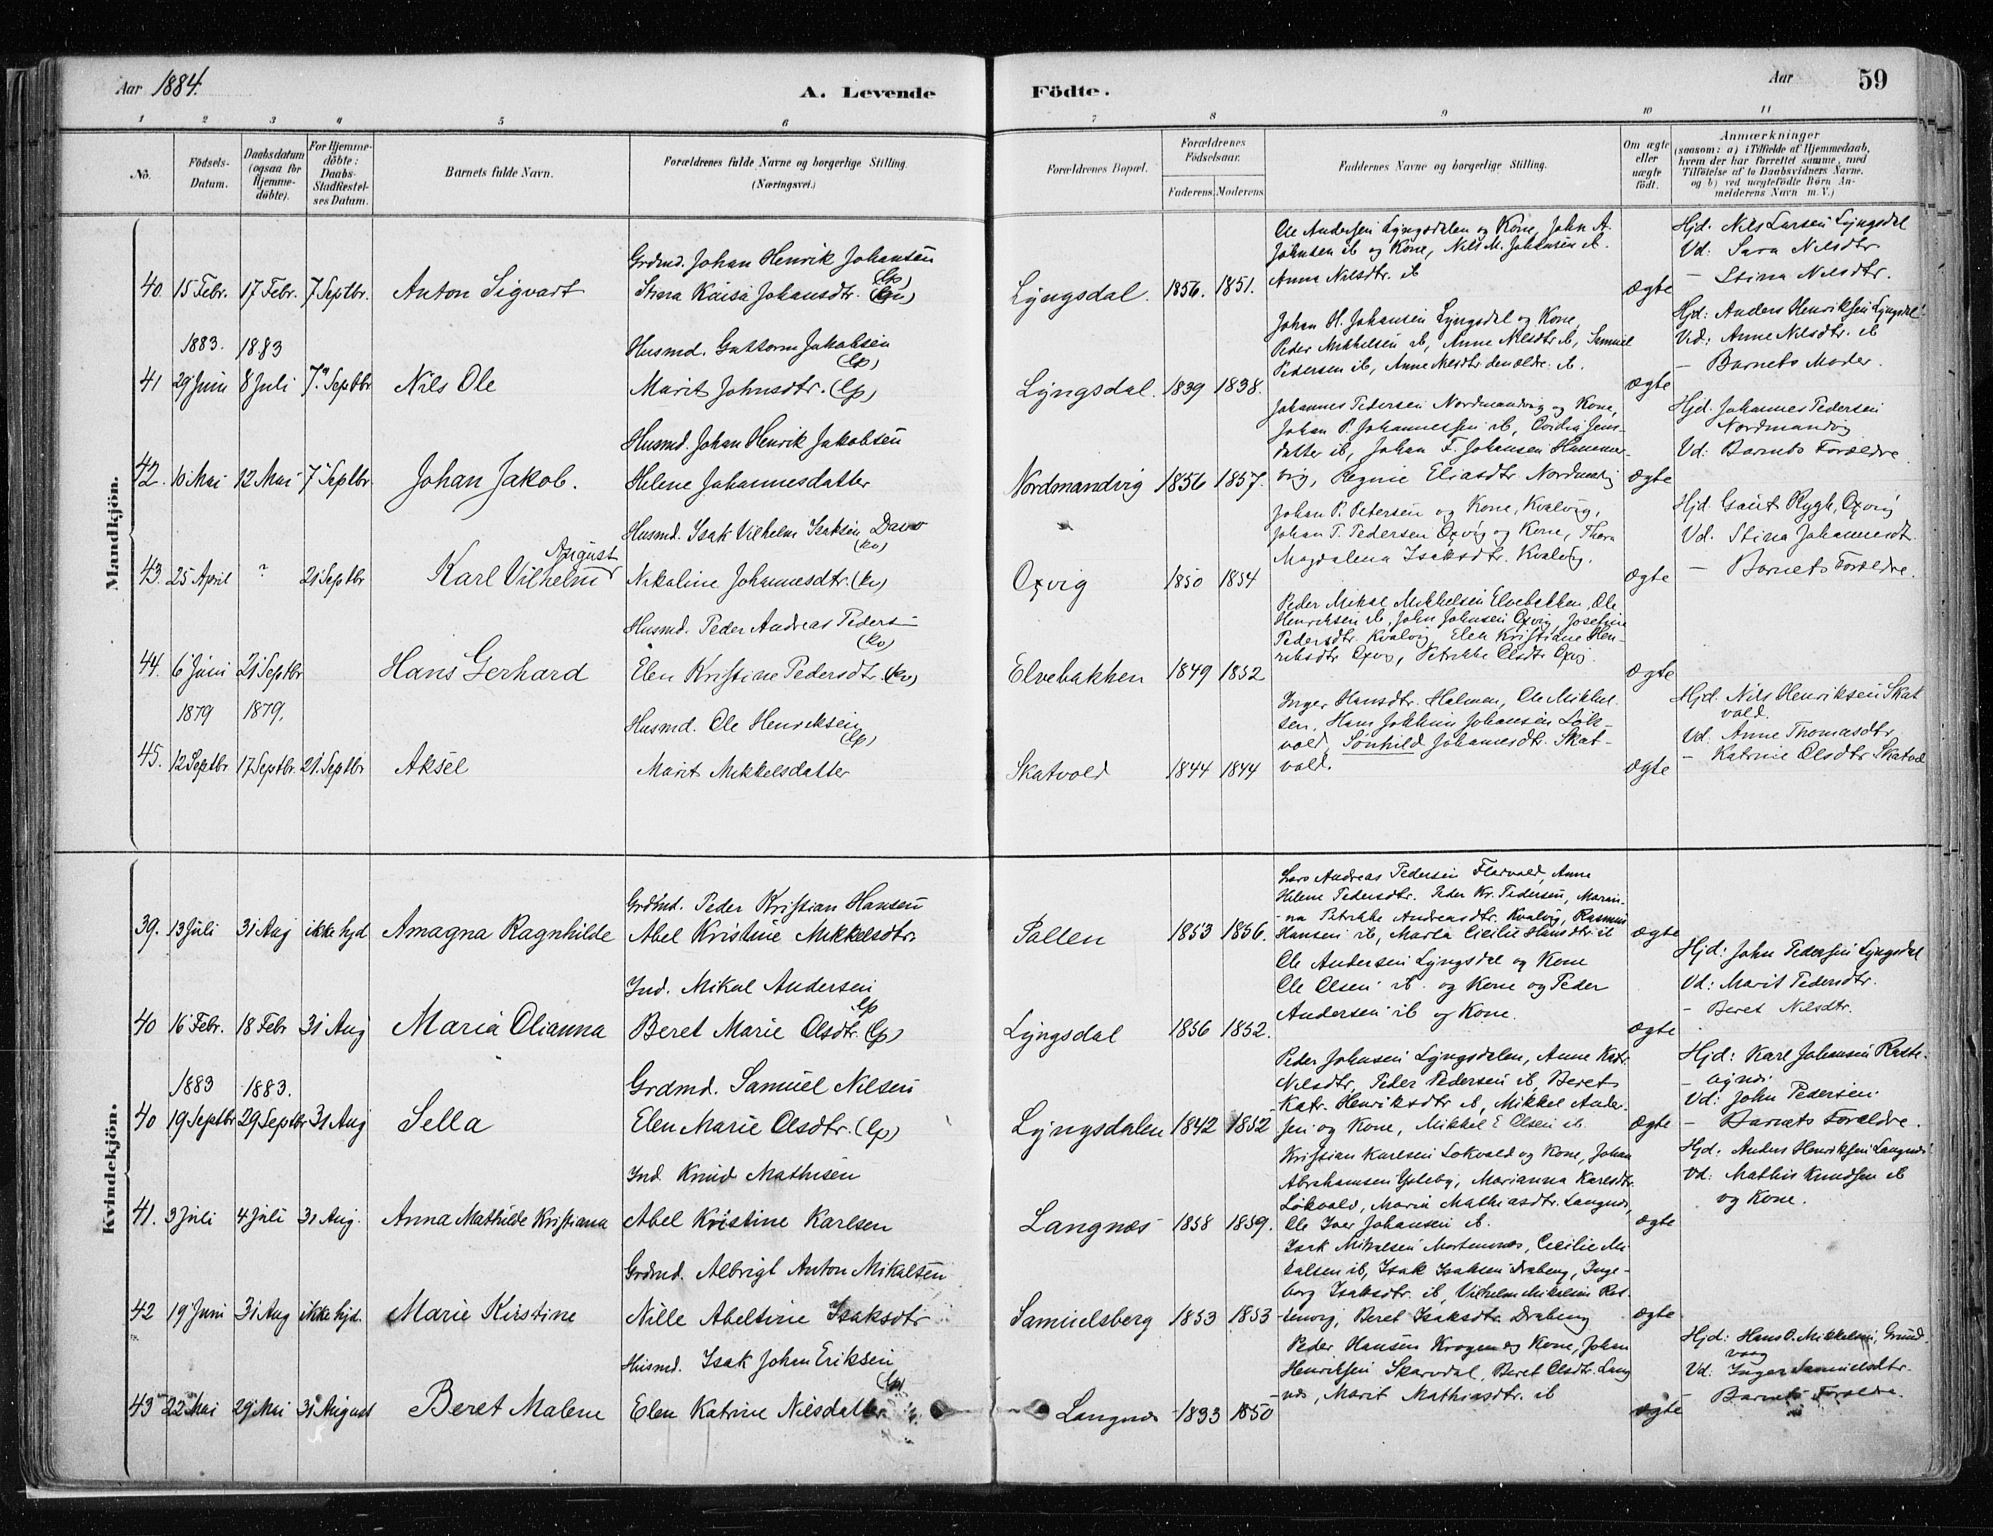 Aar 1884.
A. Levende
Födte.
Aar
59
1 2 3 4 5 6 7 8 9 10 11
No.
Födsels-Datum.
Daabsdatum (ogsaa for Hjemme-döbte).
For Hjemme-döbte: Daabs-Stadfæstel-ses Datum.
Barnets fulde Navn.
Forældrenes fulde Navne og borgerlige Stilling. (Næringsvei.)
Forældrenes Bopæl.
Forældrenes Födselsaar.
Faderens. Moderens.
Faddernes Navne og borgerlige Stilling.
Om ægte eller uægte födt.
Anmærkninger
(saasom: a) i Tilfælde af Hjemmedaab, hvem der har forrettet samme, med Tilföielse af to Daabsvidners Navne. og b) ved uægtefödte Börn An-melderens Navn m. V.)
Mandkjön.
Grdmd. Johan Henrik Johansen (lp)
40. 15 Febr. 17 Febr. 7 Septbr. Anton Sigvart Stina Kaisa Johansdtr. Lyngsdal. 1856. 1851.
Ole Andersen Lyngsdalen og Kone, John A.
Johnsen ib og Kone, Nils M. Johansen ib.
Anna Nilsdtr. ib
ægte
Hjd. Nils Larsen Lyngsdal
Vd: Sara Nilsdtr
- Stina Nilsdtr.
1883. 1883
Husmd. Guttorm Jakobsen (lp)
41 29 Juni 8 Juli 7 Septbr Nils Ole Marit Johnsdtr. (lp) Lyngsdal. 1839 1838.
Johan H. Johansen Lyngsdal og Kone,
Peder Mikkelsen ib, Anne Nilsdtr ib, Samuel
Pedersen ib, Anne Nilsdtr den ældre ib.
ægte
Hjd: Anders Henriksen Lyngsdal
Vd: Anne Nilsdtr. ib
- Barnets Moder.
Husmd. Johan Henrik Jakobsen
42. 10 Mai 12 Mai 7 Septbr Johan Jakob. Helene Johannesdatter Nordmandvig 1856 1857.
Johannes Pedersen Nordmandvig og Kone,
Johan P. Johannessen ib,
datter ib, Johan F. Johansen Hammer-
vig, Regine Eliasdtr. Nordmvig
ægte
Hjd. Johannes Pedersen
Nordmandvig
Vd: Barnets Forældre
Husmd. Isak Vilhelm Isaksen (kv)
August
43. 25 April ? 21 Septbr Karl Vilhelm Nikoline Johannesdtr. (kv) Oxvig 1850 1854
Johan P. Petersen og Kone, Kvalvig,
Johan T. Pedersen Oxvig og Kone, Thora
Magdalena Isaksdtr. Kvalvig.
ægte
Hjd. Gaut Rygh, Oxvig
Vd. Stina Johannesdt.
- Barnets Forældre.
Husmd. Peder Andreas Peders- (kv)
44. 6 Juni 21 Septbr Hans Gerhard Elen Kristine Pedersdtr. (kv) Elvebakken 1849 1852
Peder Mikal Mikkelsen Elvebakken, Ole
Henriksen ib, John Johnsen Oxvig, Josefine
Pedersdtr. Kvalvig, Elen Kristiane Hen-
riksdtr Oxvig, Petrikke Olsdtr Oxvig.
ægte
1879 1879.
Husmd. Ole Henriksen (lp)
45. 12 Septbr 17 Septbr. 21 Septbr Aksel Marit Mikkelsdatter Skatvold 1844 1844
Inger Hansdtr. Holmen, Ole Mikkel-
sen, Hans Jokkim Johansen Løk-
vold, Sønhild Johannesdtr. Skat-
vold.
ægte
Hjd. Nils Henriksen Skat
vold.
Vd. Anne Thomasdtr
- Katrine Olsdtr Skatvol
Kvindekjön.
Grdmd. Peder Kristian Hansen
39. 13 Juli 31 Aug ikke hjd Amagna Ragnhilde Abel Kristine Mikkelsdtr. Pollen 1853 1856.
Lars Andreas Pedersen Flatvold, Anne
Helene Pedersdtr. Peder Kr. Pedersen, Marin-
na Petrikke Andreasdtr. Kvalvig, Rasmus
Hansen ib, Marta Cicilie Hansdtr ib
ægte
Ind. Mikal Andersen lp
40 16 Febr. 18 Febr 31 Aug Maria Olianna Beret Marie Olsdtr. (lp) Lyngsdal 1856 1852.
Ole Andersen Lyngsdal og Kone
Ole Olsen ib. og Kone og Peder
Andersen ib og Kone.
ægte
Hjd: John Pedersen Lyngsdal
Vd: Marit Pedersdtr.
- Beret Nilsdtr.
1883 1883.
Grdmd. Samuel Nilsen
40 19 Septbr 29 Septbr 31 Aug Sella Elen Marie Olsdtr. (lp) Lyngsdalen 1842 1852
Peder Johnsen Lyngsdalen, Anne Katr.
Nilsdtr, Peder Pedersen ib, Beret
Katr. Henriksdtr ib, Mikkel Ander-
sen og Kone, Mikkel E Olsen ib.
ægte
Hjd: Karl Johansen Raste-
bynd.
Vd: John Pedersen
- Barnets Forældre.
Ind Knud Mathisen
41. 3 Juli 4 Juli 31 Aug. Anna Mathilde Kristiana Abel Kristine Karlsen Langnæs 1858 1859.
Kristian Karlsen Løkvold og Kone, Johan
Abrahamsen, Marianna Karlsdtr.
Løkvold, Maria Mathiasdtr. Langnæs,
Ole Iver Johansen ib.
ægte
Hjd. Anders Henriksen Langnæs
Vd: Mathis Knudsen ib
og Kone.
Grdmd. Albrigt Anton Mikalsen
42 19 Juni 31 Aug ikke hjd. Marie Kirstine Nille Abeltine Isaksdtr Samuelsberg 1853 1853
Isak Mikalsen Mortensnæs, Cecilie Mi-
kalsen ib, Isak Isaksen Draberg, Inge-
borg Isaksdtr. ib, Vilhelm Mikalsen Ros-
, Beret Isaksdtr. Draberg
ægte
Husmd. Isak Johan Eriksen (lp)
43 22 Mai 29 Mai 31 August Beret Malene Elen Katrine Nilsdatter Langnæs 1833 1850
Peder Hansen Krogen og Kone, Johan
Henriksen Skardal, Beret Olsdtr. Lang
næs, Marit Mathiasdtr. ib
ægte
Hjd: Hans O. Mikkelsen, Grund-
vaag
Vd: Inger Samuelsdtr.
Barnets Forældre.